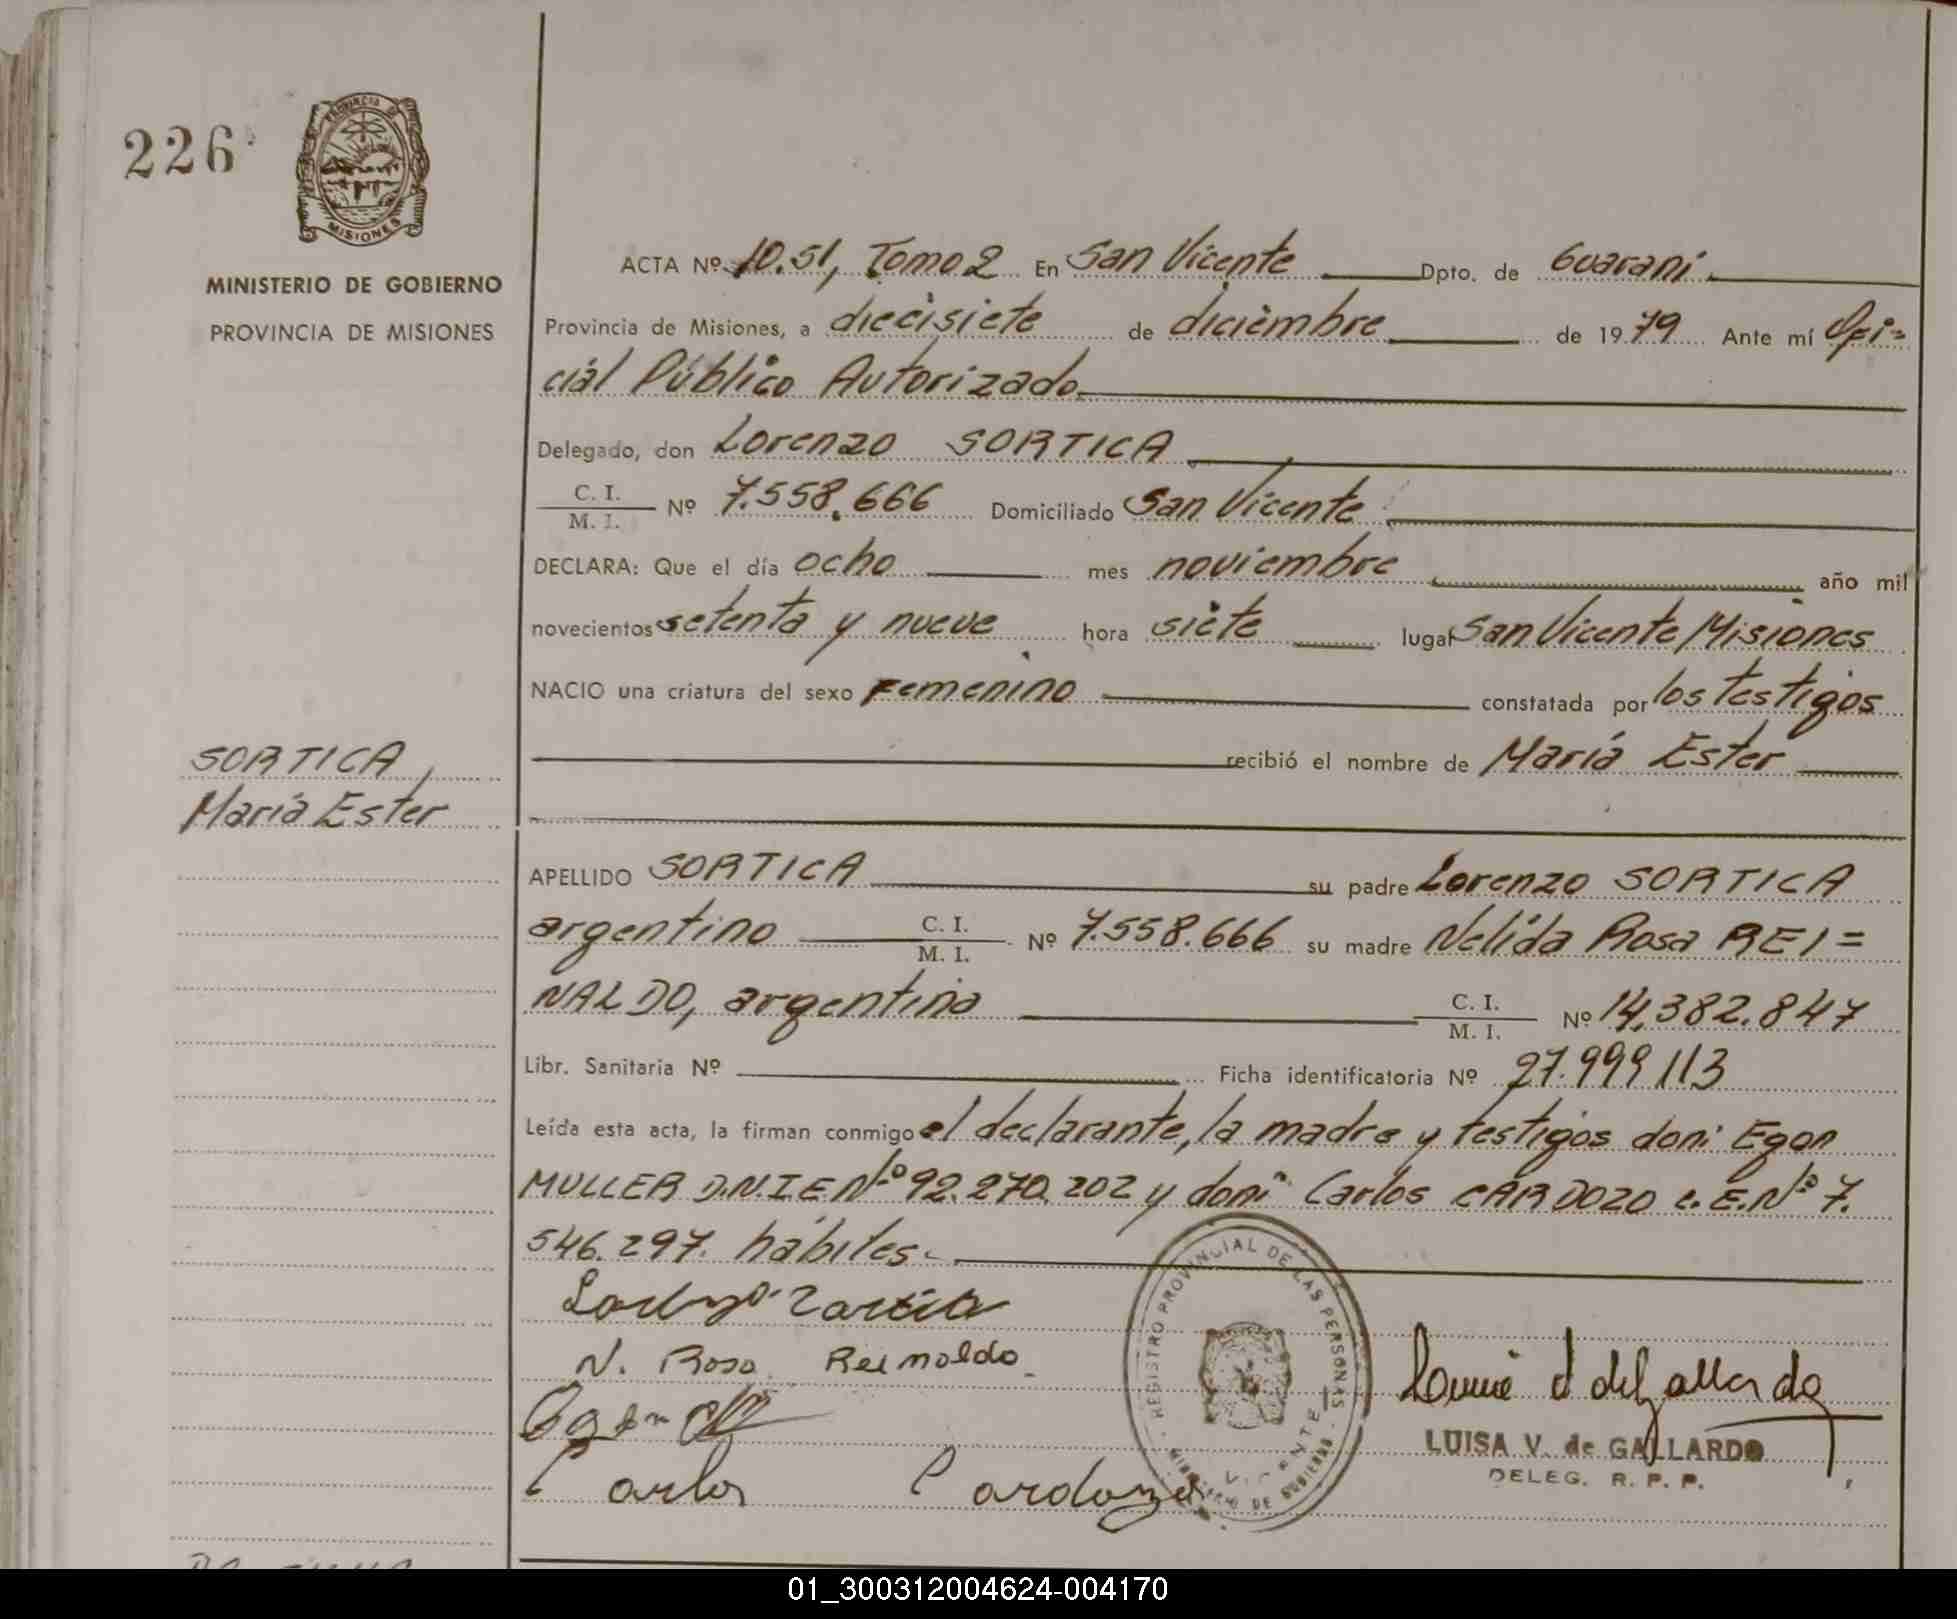 226
PROVINCIA DE
MISIONES
MINISTERIO DE GOBIERNO
PROVINCIA DE MISIONES
ACTA Nº 10.51, Tomo 2 En San Vicente Dpto. de Guaraní
Provincia de Misiones, a diecisiete de diciembre de 1979 Ante mí Ofi=
cial Público Autorizado
Delegado, don Lorenzo SORTICA
C. I.
M. I. Nº 7.558.666 Domiciliado San Vicente
DECLARA: Que el día ocho mes noviembre año mil
novecientos setenta y nueve hora siete lugar San Vicente Misiones
NACIO una criatura del sexo Femenino constatada por los testigos
recibió el nombre de María Ester
SORTICA,
María Ester
APELLIDO SORTICA su padre Lorenzo SORTICA
argentino C. I. M. I. Nº 7.558.666 su madre Nelida Rosa REI=
NALDO, argentina C. I. M. I. Nº 14.382.847
Libr. Sanitaria Nº Ficha identificatoria Nº 27.999.113
Leída esta acta, la firman conmigo el declarante, la madre y testigos don: Egon
MULLER D.N.I.E Nº 92.270.202 y don: Carlos CARDOZO C.E.Nº 7.
546.297. hábiles.
N. Rosa Reinaldo
Carlos Cardozo
REGISTRO PROVINCIAL DE LAS PERSONAS
MINISTERIO DE GOBIERNO
VICENTE
LUISA V. de GALLARDO
DELEG. R. P. P.
01_300312004624-004170